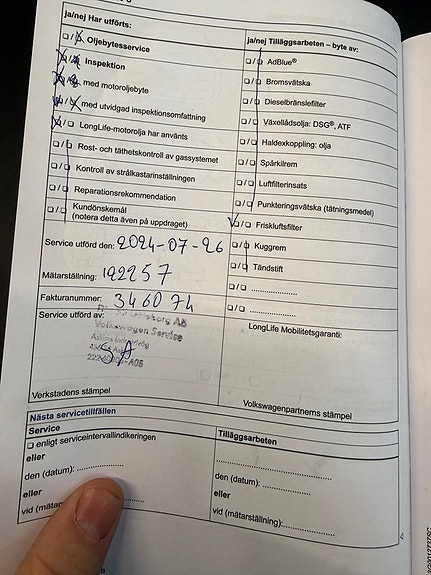 ja/nej Har utförts:
☐/☒ Oljebytesservice
☒/☒ Inspektion
☒/☒ med motoroljebyte
☒/☒ med utvidgad inspektionsomfattning
☒/☐ LongLife-motorolja har använts
☐/☐ Rost- och täthetskontroll av gassystemet
☐/☐ Kontroll av strålkastarinställningen
☐/☐ Reparationsrekommendation
☐/☐ Kundönskemål
(notera detta även på uppdraget)
Service utförd den: 2024-07-26
Mätarställning: 122257
Fakturanummer: 346074
Service utförd av:
AB
Volkswagen Service
Verkstadens stämpel
ja/nej Tilläggsarbeten – byte av:
☐/☐ AdBlue®
☐/☐ Bromsvätska
☐/☐ Dieselbränslefilter
☐/☐ Växellådsolja: DSG®, ATF
☐/☐ Haldexkoppling: olja
☐/☐ Spårkilrem
☐/☐ Luftfilterinsats
☐/☐ Punkteringsvätska (tätningsmedel)
☑/☐ Friskluftsfilter
☐/☐ Kuggrem
☐/☐ Tändstift
☐/☐ ..................
☐/☐ ..................
LongLife Mobilitetsgaranti:
Volkswagenpartnerns stämpel
Nästa servicetillfällen
Service
☐ enligt serviceintervallindikeringen
eller
den (datum): ................
eller
vid (mätar
Tilläggsarbeten
..............................
den (datum): ................
eller
vid (mätarställning):................